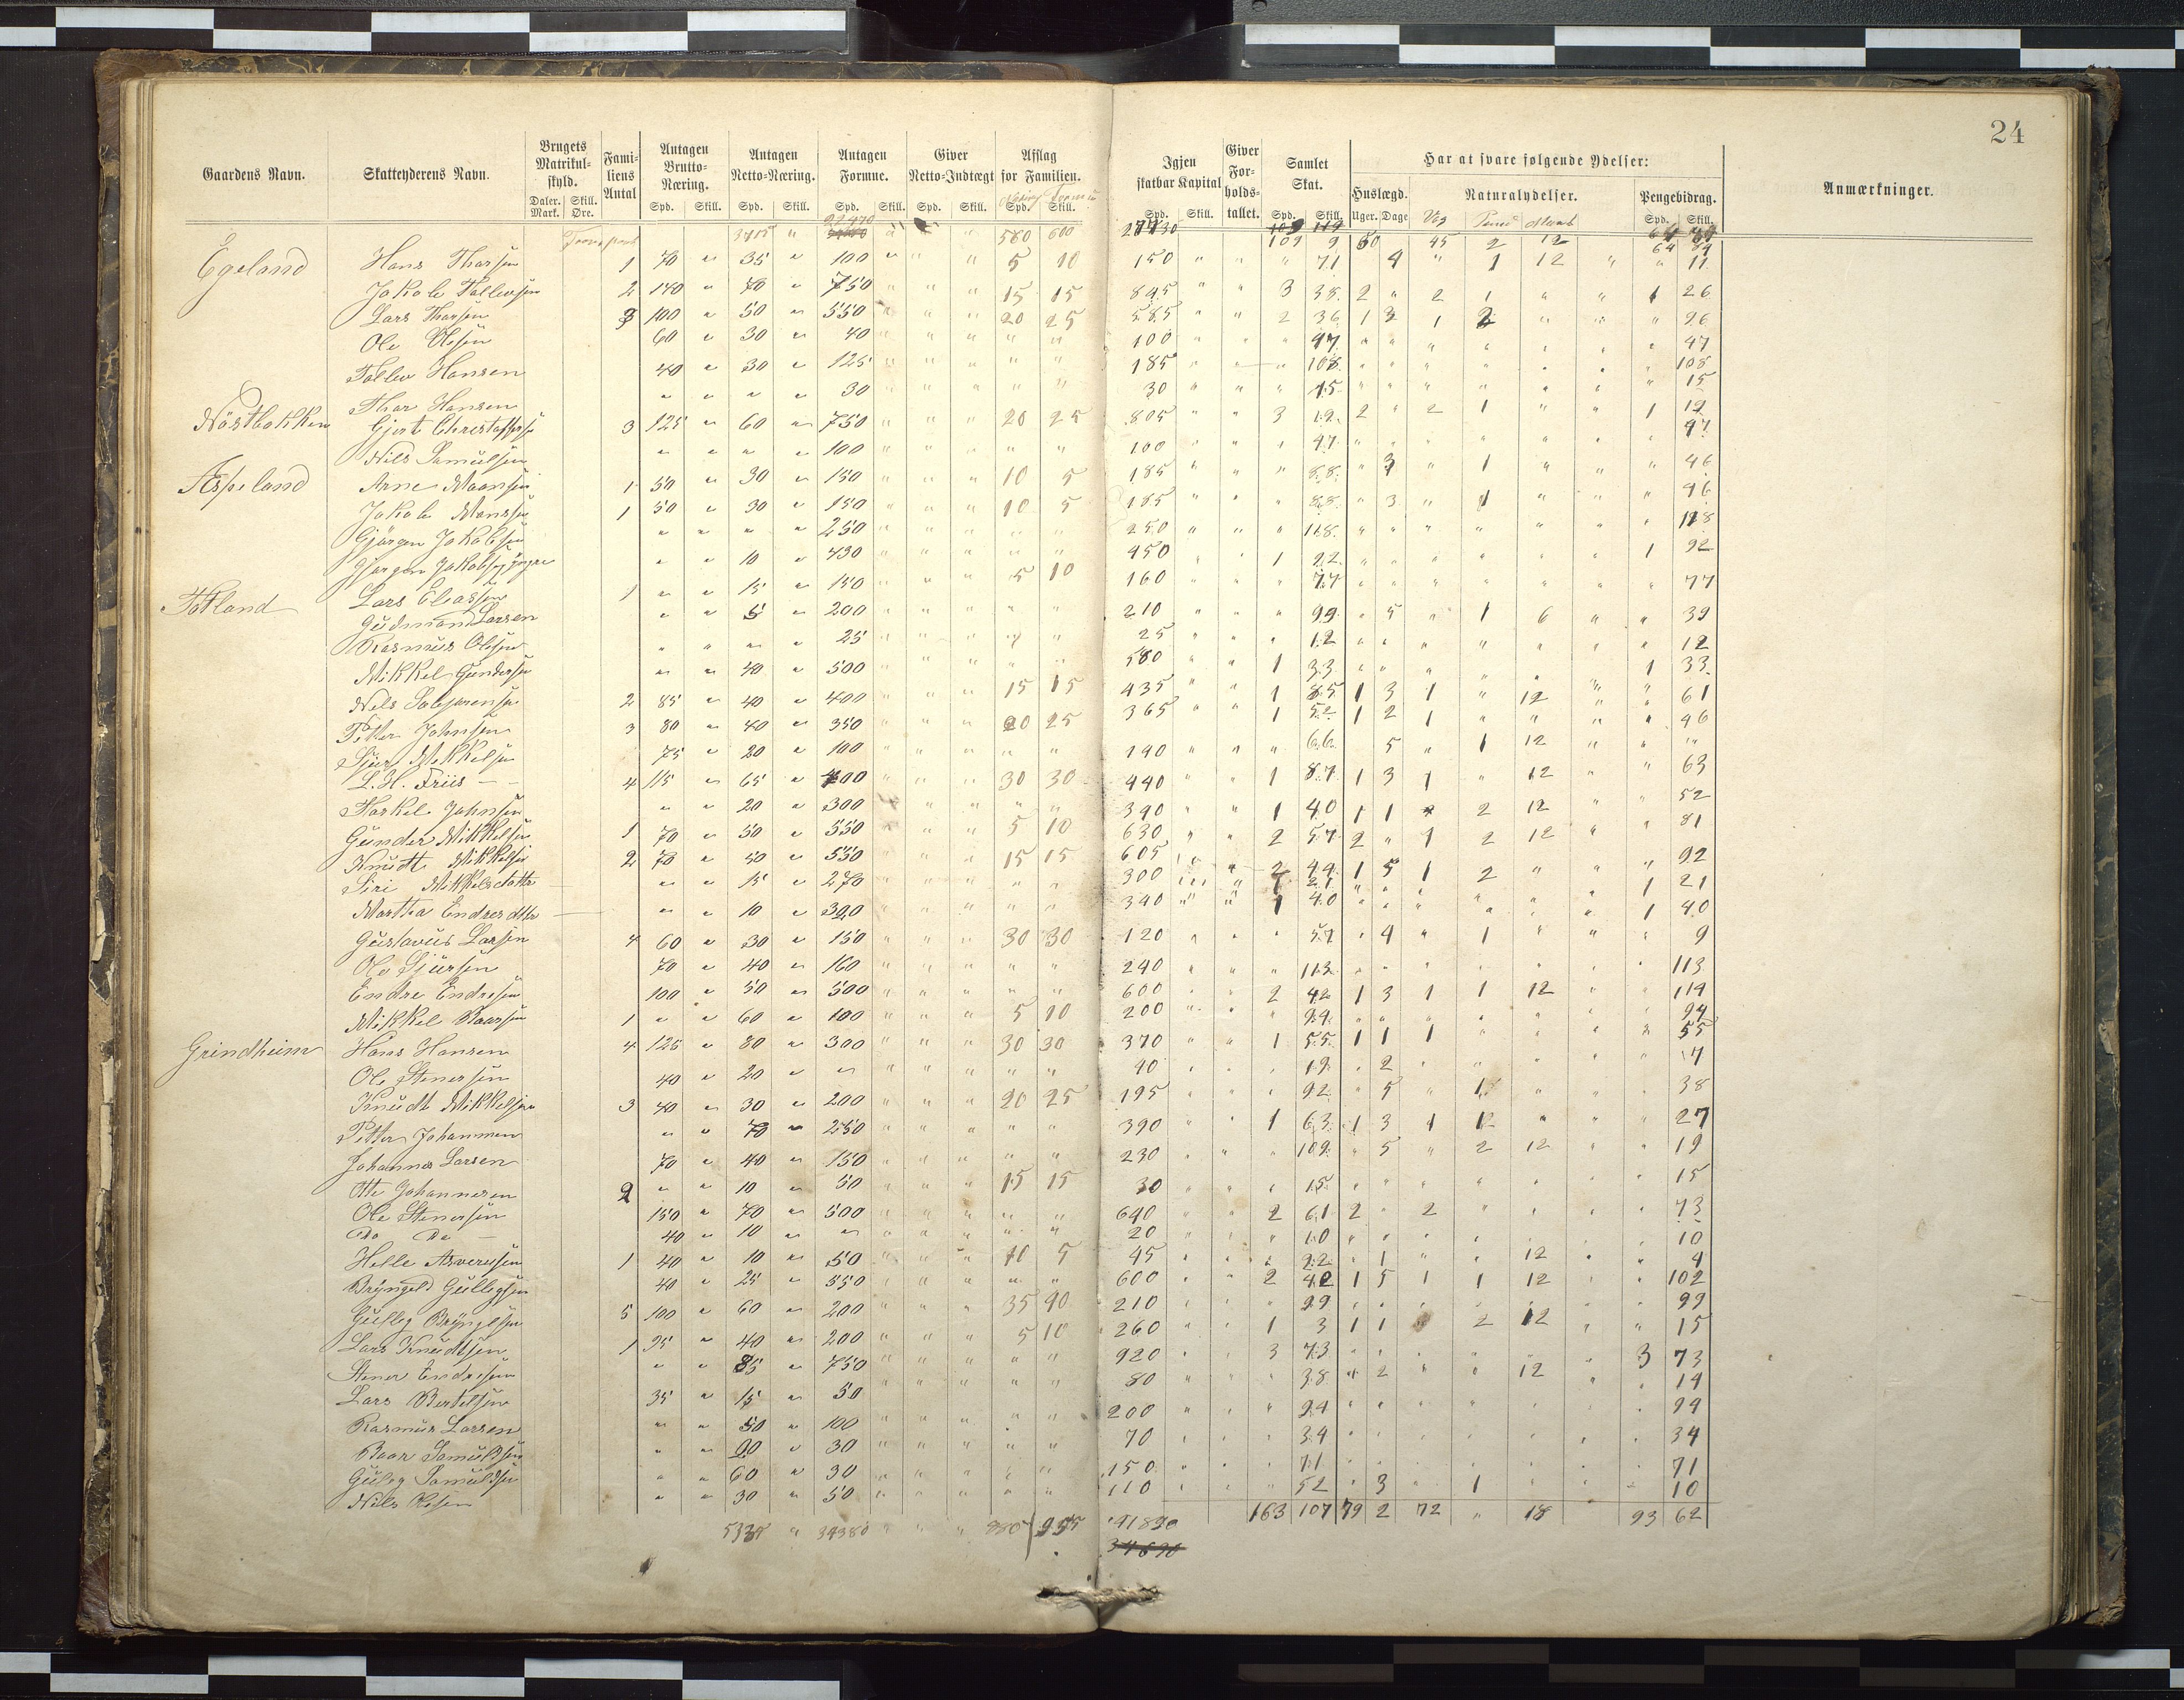 24
Gaardens Navn. Skatteyderens Navn. Brugets Matrikul-skyld. Fami-liens Antal Antagen Brutto-Næring. Antagen Netto-Næring. Antagen Formue. Giver Netto-Indtægt Afslag for Familien. Igjen skatbar Kapital Giver For-holds-tallet. Samlet Skat. Har at svare følgende Ydelser: Anmærkninger.
Huslægd. Naturalydelser. Pengebidrag.
Daler. Mark. Skill. Øre. Spd. Skill. Spd. Skill. Spd. Skill. Spd. Skill. Spd. Skill. Spd. Skill. Spd. Skill. Uger. Dage Spd. Skill.
Transport 3415 " 22470 560 600 27430 109 9 50 45 2 12 64 89
Egeland Hans Tharsen 1 70 " 35 " 100 " " " 5 10 150 " " " 71 4 " 1 12 " " 11
Jakob Tollevsen 2 140 " 70 " 750 " " " 15 15 845 " " 3 38 2 " 2 1 " " 1 26
Lars Tharsen 3 100 " 50 " 550 " " " 20 25 585 " " 2 36 1 3 1 2 " " " 26
Ole Olsen 60 " 30 " 40 " " " " " 100 " " " 47 " " " " " " " 47
Tollev Hansen 40 " 30 " 125 " " " " " 185 " " " 108 " " " " " " " 108
Thor Hansen " " " " 30 " " " " " 30 " " " 15 " " " " " " " 15
Nöstbakken Gjert Christoffersen 3 125 " 60 " 750 " " " 20 25 805 " " 3 19 2 " 2 1 " " 1 12
Nils Samuelsen " " " " 100 " " " " " 100 " " " 47 " " " " " " " 47
Æspeland Arne Maansen 1 50 " 30 " 150 " " " 10 5 185 " " " 88 " 3 " 1 " " " 46
Jakob Monsen 1 50 " 30 " 150 " " " 10 5 185 " " " 88 " 3 " 1 " " " 46
Gjörgen Jakobsen " " " " 250 " " " " " 250 " " " 118 " " " " " " " 118
Gjørgen Jakobsen yngre " " 10 " 430 " " " " " 450 " " 1 92 " " " " " " 1 92
Totland Lars Eliassen 1 " " 15 " 150 " " " 5 10 160 " " " 77 " " " " " " " 77
Gudmund Larsen " " 5 " 200 " " " " " 210 " " " 99 " 5 " 1 6 " " 39
Rasmus Olsen " " " " 25 " " " " " 25 " " " 12 " " " " " " " 12
Mikkel Gundersen " " 40 " 500 " " " " " 580 " " 1 33 " " " " " " 1 33
Nils Salamonsen 2 85 " 40 " 400 " " " 15 15 435 " " 1 85 1 3 1 " 12 " " 61
Petter Johnsen 3 80 " 40 " 350 " " " 20 25 365 " " 1 52 1 2 1 " " " " 46
Sjur Mikkelsen 75 " 20 " 100 " " " " " 140 " " " 66 5 " 1 12 " " "
L. H. Friis 4 115 " 65 " 400 " " " 30 30 440 " " 1 87 1 3 1 " 12 " " 63
Torkel Johnsen " " 20 " 300 " " " " " 340 " " 1 40 1 1 " 2 12 " " 52
Gunder Mikkelsen 1 70 " 50 " 550 " " " 5 10 630 " " 2 57 2 " 1 2 12 " " 81
Knudt Mikkelsen 2 70 " 50 " 550 " " " 15 15 605 " " 2 44 1 5 1 2 " " " 92
Siri Mikkelsdatter " " 15 " 270 " " " " " 300 " " 1 21 " " " " " " 1 21
Martha Endresdtter " " 10 " 320 " " " " " 340 " " 1 40 " " " " " " 1 40
Gustavus Larsen 4 60 " 30 " 150 " " " 30 30 120 " " " 57 " 4 " 1 " " " 9
Ole Sjursen 70 " 40 " 160 " " " " " 240 " " " 113 " " " " " " " 113
Endre Endresen 100 " 50 " 500 " " " " " 600 " " 2 42 1 3 1 1 12 " " 114
Mikkel Baarsen 1 " " 60 " 100 " " " 5 10 200 " " " 94 " " " " " " " 94
Grindheim Hans Hansen 4 125 " 80 " 300 " " " 30 30 370 " " 1 55 1 1 1 " " " " 55
Ole Stenersen 40 " 20 " " " " " " " 40 " " " 19 " 2 " " " " " 7
Knudt Mikkelsen 3 40 " 30 " 200 " " " 20 25 195 " " " 92 " 5 " 1 " " " 38
Petter Johannesen " " 70 " 250 " " " " " 390 " " 1 63 1 3 1 1 " " " 27
Johannes Larsen 70 " 40 " 150 " " " " " 230 " " " 109 " 5 " 2 12 " " 19
Otte Johannesen 2 " " 10 " 50 " " " 15 15 30 " " " 15 " " " " " " " 15
Ole Stenersen 150 " 70 " 500 " " " " " 640 " " 2 61 2 " 2 " " " " 73
Do Do 40 " 10 " " " " " " " 20 " " " 10 " " " " " " " 10
Helle Asversen 1 40 " 10 " 50 " " " 10 5 45 " " " 22 " 1 " " 12 " " 4
Bryngeld Gullegsen 40 " 25 " 550 " " " " " 600 " " 2 42 1 5 1 1 12 " " 102
Gulleg Bryngelsen 5 100 " 60 " 200 " " " 35 90 210 " " " 99 " " " " " " " 99
Lars Knudtsen 1 95 " 40 " 200 " " " 5 10 260 " " 1 3 1 1 2 12 " " 15
Stener Endresen " " 85 " 750 " " " " " 920 " " 3 73 " " " " " " 3 73
Lars Bertelsen 35 " 15 " 50 " " " " " 80 " " " 38 " 2 " " 12 " " 14
Rasmus Larsen " " 50 " 100 " " " " " 200 " " " 94 " " " " " " " 94
Baar Samuelsen " " 20 " 30 " " " " " 70 " " " 34 " " " " " " " 34
Guleg Samuelsen " " 60 " 30 " " " " " 150 " " " 71 " " " " " " " 71
Nils Olsen " " 30 " 50 " " " " " 110 " " " 52 " 3 " 1 " " " 10
5335 " 34380 " " " 955 41890 163 107 79 2 72 " 18 93 62